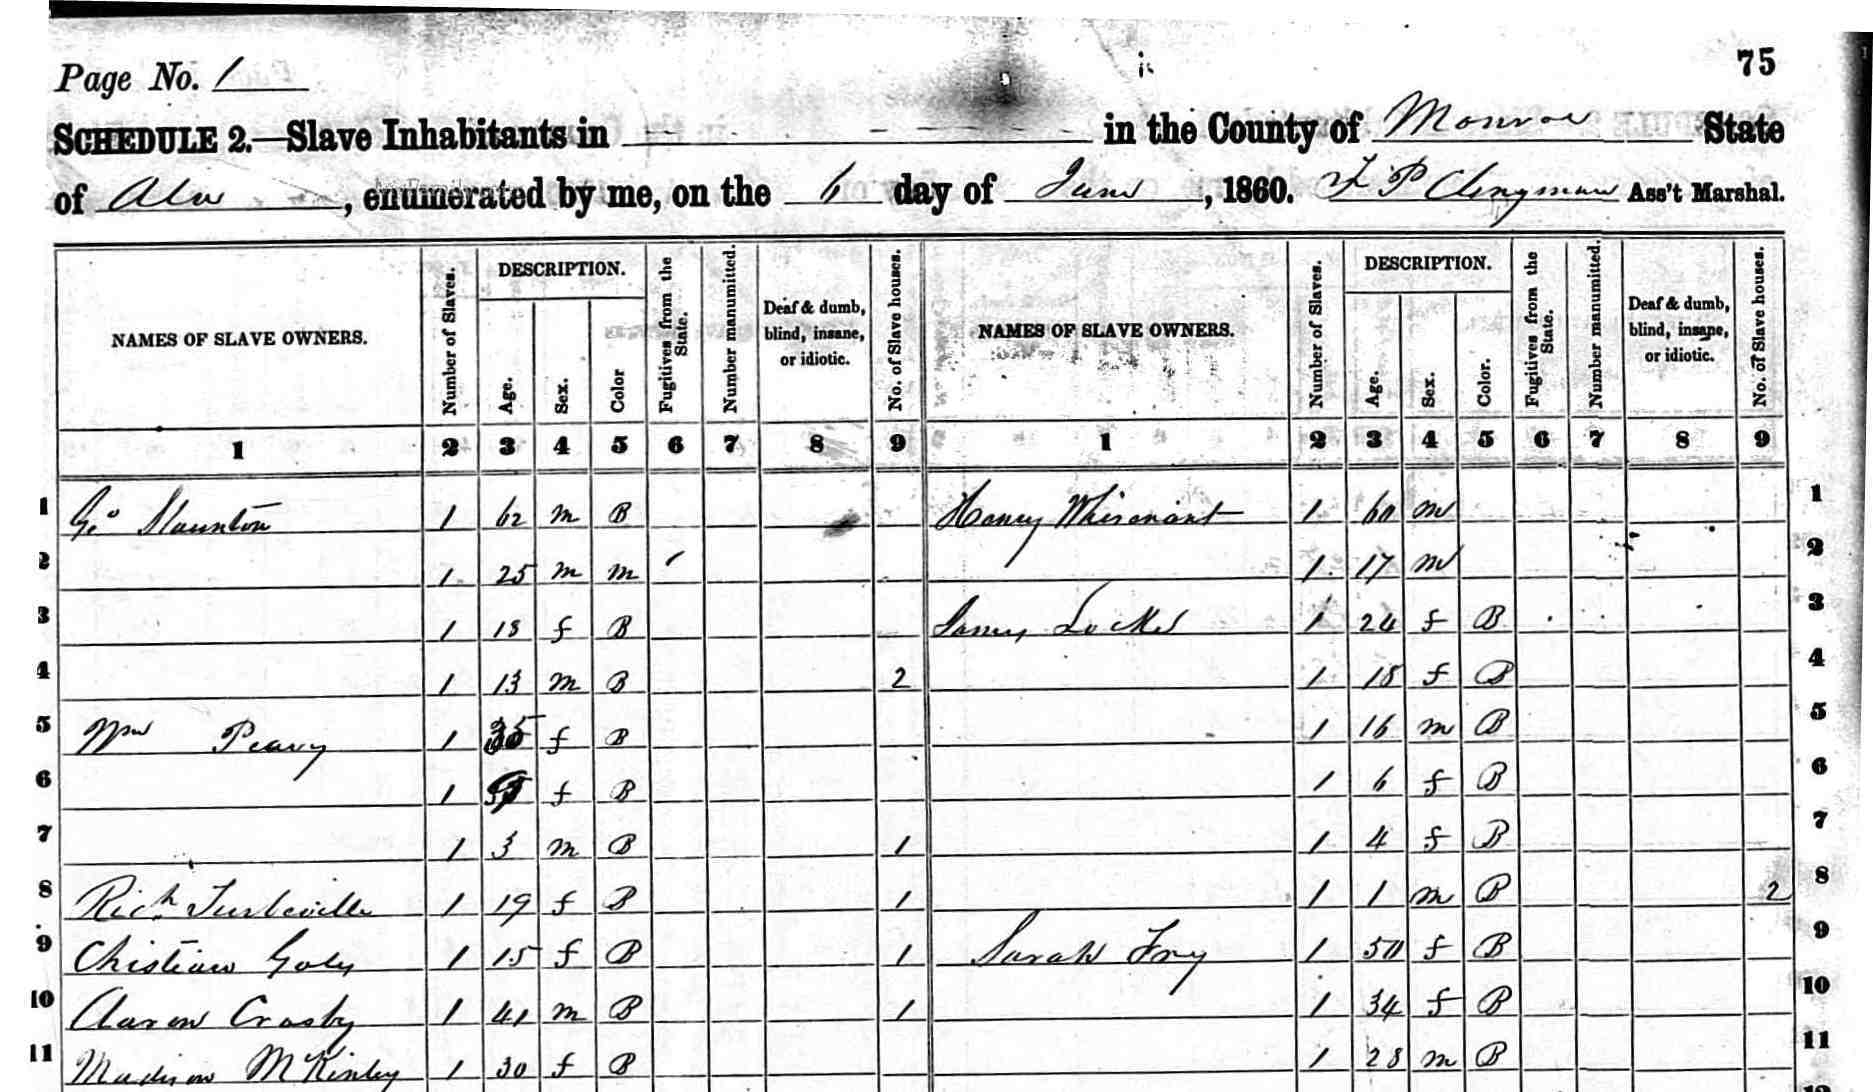 75
Page No. 1
SCHEDULE 2.—Slave Inhabitants in in the County of Monroe State
of Ala, enumerated by me, on the 6 day of June, 1860. F P Clingman Ass't Marshal.
NAMES OF SLAVE OWNERS. Number of Slaves. DESCRIPTION. Age. Sex. Color Fugitives from the State. Number manumitted. Deaf & dumb, blind, insane, or idiotic. No. of Slave houses. NAMES OF SLAVE OWNERS. Number of Slaves. DESCRIPTION. Age. Sex. Color. Fugitives from the State. Number manumitted. Deaf & dumb, blind, insane, or idiotic. No. of Slave houses.
1 2 3 4 5 6 7 8 9 1 2 3 4 5 6 7 8 9
1 Geo Staunton 1 62 m B Henry Whisenant 1 60 m 1
2 1 25 m m 1 17 m 2
3 1 18 f B James Locke 1 24 f B 3
4 1 13 m B 2 1 18 f B 4
5 Wm Peavy 1 35 f B 1 16 m B 5
6 1 f B 1 6 f B 6
7 1 3 m B 1 1 4 f B 7
8 Rich Turbeville 1 19 f B 1 1 1 m B 2 8
9 Chistian Goly 1 15 f B 1 Sarah Fry 1 50 f B 9
10 Aaron Crosby 1 41 m B 1 1 34 f B 10
11 Madison McKinley 1 30 f B 1 28 m B 11